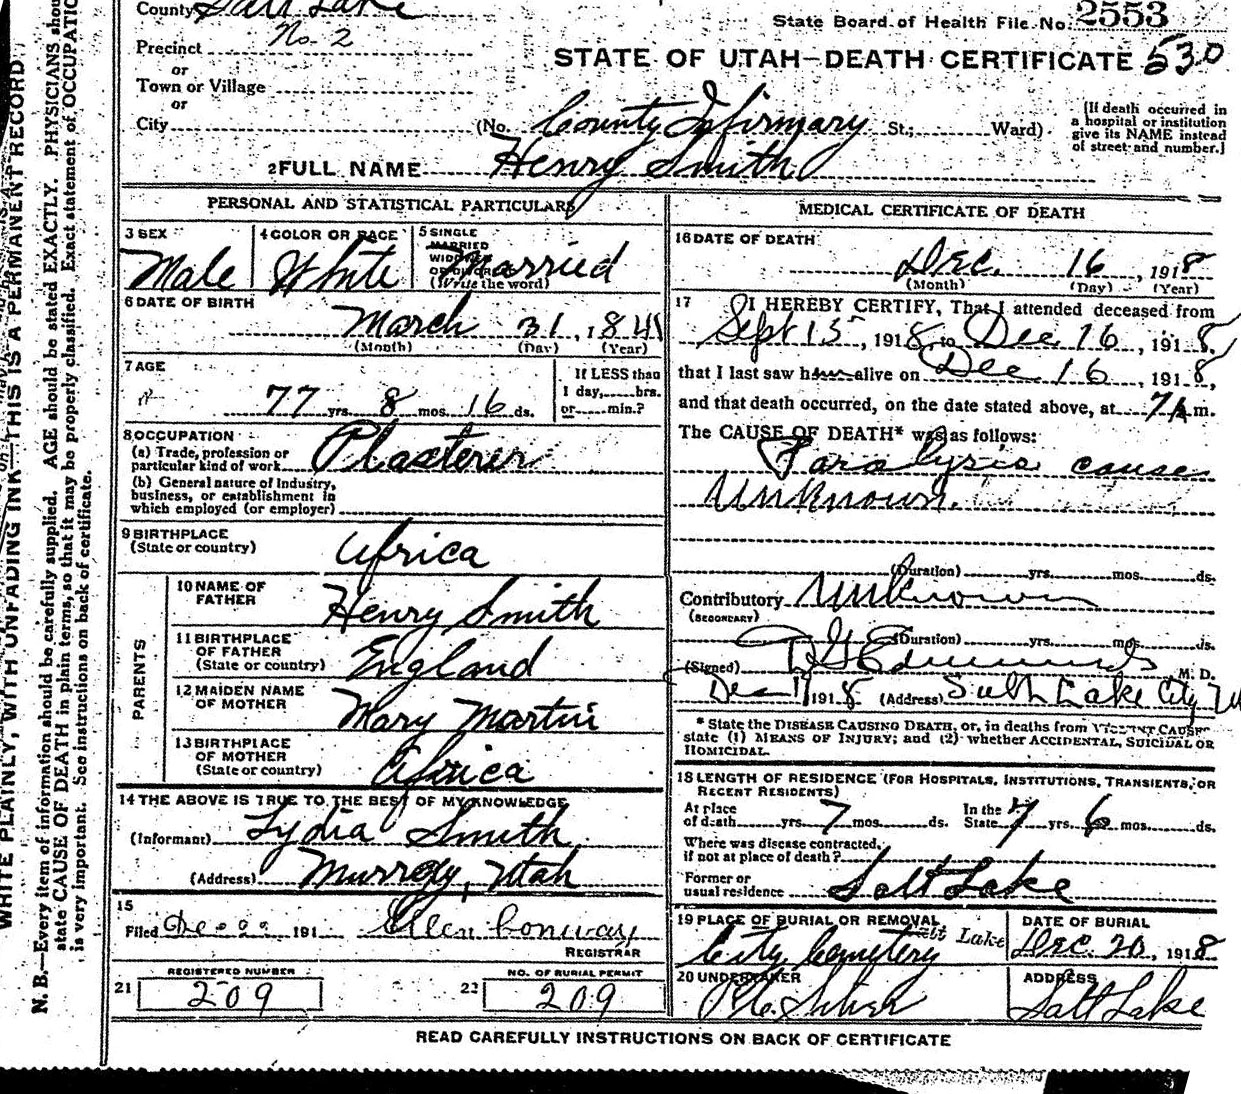 County Salt Lake
State Board of Health File No. 2553
Precinct No. 2
STATE OF UTAH—DEATH CERTIFICATE 530
or
Town or Village
or
City (No. County Infirmary St.; Ward)
(If death occurred in
a hospital or institution
give its NAME instead
of street and number.)
2 FULL NAME Henry Smith
PERSONAL AND STATISTICAL PARTICULARS
3 SEX Male
4 COLOR OR RACE White
5 SINGLE
MARRIED
WIDOWED
OR DIVORCED
(Write the word) Married
6 DATE OF BIRTH
March 31, 1841
(Month) (Day) (Year)
7 AGE
77 yrs. 8 mos. 16 ds.
If LESS than
1 day, hrs.
or min.?
8 OCCUPATION
(a) Trade, profession or
particular kind of work Plasterer
(b) General nature of Industry,
business, or establishment in
which employed (or employer)
9 BIRTHPLACE
(State or country) Africa
PARENTS
10 NAME OF
FATHER Henry Smith
11 BIRTHPLACE
OF FATHER
(State or country) England
12 MAIDEN NAME
OF MOTHER Mary Martin
13 BIRTHPLACE
OF MOTHER
(State or country) Africa
14 THE ABOVE IS TRUE TO THE BEST OF MY KNOWLEDGE
(Informant) Lydia Smith
(Address) Murray, Utah
15
Filed 191 Ellen Conway
REGISTRAR
REGISTERED NUMBER
21 209
NO. OF BURIAL PERMIT
22 209
MEDICAL CERTIFICATE OF DEATH
16 DATE OF DEATH
Dec. 16, 1918
(Month) (Day) (Year)
17 I HEREBY CERTIFY, That I attended deceased from
Sept 15, 1918, to Dec 16, 1918,
that I last saw him alive on Dec 16, 1918,
and that death occurred, on the date stated above, at 7 A m.
The CAUSE OF DEATH* was as follows:
Paralysis cause
Unknown.
(Duration) yrs. mos. ds.
Contributory Unknown
(SECONDARY)
(Duration) yrs. mos. ds.
(Signed) Edmunds M. D.
Dec 17 1918 (Address) Salt Lake City
* State the DISEASE CAUSING DEATH, or, in deaths from VIOLENT CAUSES
state (1) MEANS OF INJURY; and (2) whether ACCIDENTAL, SUICIDAL OR
HOMICIDAL.
18 LENGTH OF RESIDENCE (FOR HOSPITALS, INSTITUTIONS, TRANSIENTS, OR
RECENT RESIDENTS)
At place
of death yrs. 7 mos. ds.
In the
State yrs. 6 mos. ds.
Where was disease contracted,
if not at place of death?
Former or
usual residence Salt Lake
19 PLACE OF BURIAL OR REMOVAL
City Cemetery Salt Lake
DATE OF BURIAL
Dec. 20, 1918
20 UNDERTAKER
ADDRESS
Salt Lake
READ CAREFULLY INSTRUCTIONS ON BACK OF CERTIFICATE
WRITE PLAINLY, WITH UNFADING INK—THIS IS A PERMANENT RECORD
N. B.—Every item of information should be carefully supplied. AGE should be stated EXACTLY. PHYSICIANS shou
state CAUSE OF DEATH in plain terms, so that it may be properly classified. Exact statement of OCCUPATIO
is very important. See instructions on back of certificate.